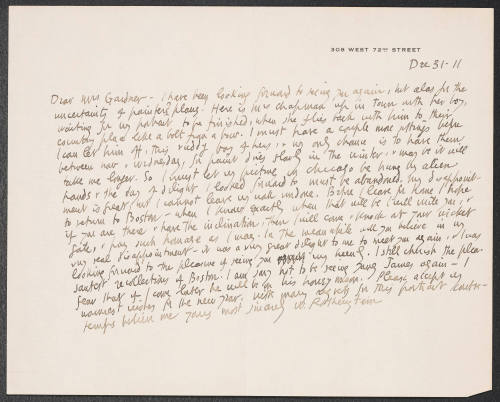 308 WEST 72ND STREET
Dec 31 - 11
Dear Mrs Gardner - I have been looking forward to seeing you again, but alas for the
uncertainty of painters' plans. Here is Mrs Chapman up in town with her boy,
waiting for his portrait to be finished, when she flies back with him to their
country place like a bolt from a bow. I must have a couple more sittings before
I can let him off, this ruddy boy of hers, & my only chance is to have them
between now & Wednesday, for paint dries slowly in the winter, & may be it will
take me longer. So I must let my pictures in Chicago be hung by alien
hands & the day of delight I looked forward to must be abandoned. My disappoint-
ment is great, but I cannot leave my work undone. Before I leave for home I hope
to return to Boston - when I know exactly when that will be I will write you, &
if you are there & have the inclination, then I will come & knock at your wicket
gate, & pay such homage as I may. In the meanwhile will you believe in my
very real disappointment - it was a very great delight to me to meet you again, & I was
looking forward to the pleasure of seeing you. I still cherish the plea-
santest recollections of Boston. I am sorry not to be seeing young James again - I
fear that if I come later he will be on his honey moon. Please accept my
warmest wishes for the new year. With many regrets for this portrait contre-
temps believe me yours most sincerely W. Rothenstein